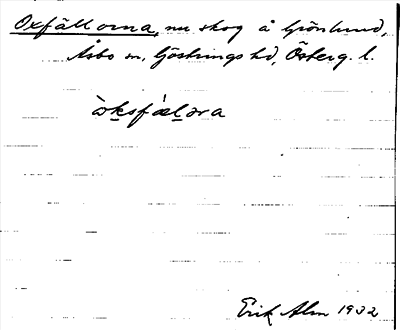 Oxfällorna, nu skog å Grönlund,
Åsbo sn, Göstrings hd, Österg. l.
ὼksfæ̀lәra
Erik Alm 1932